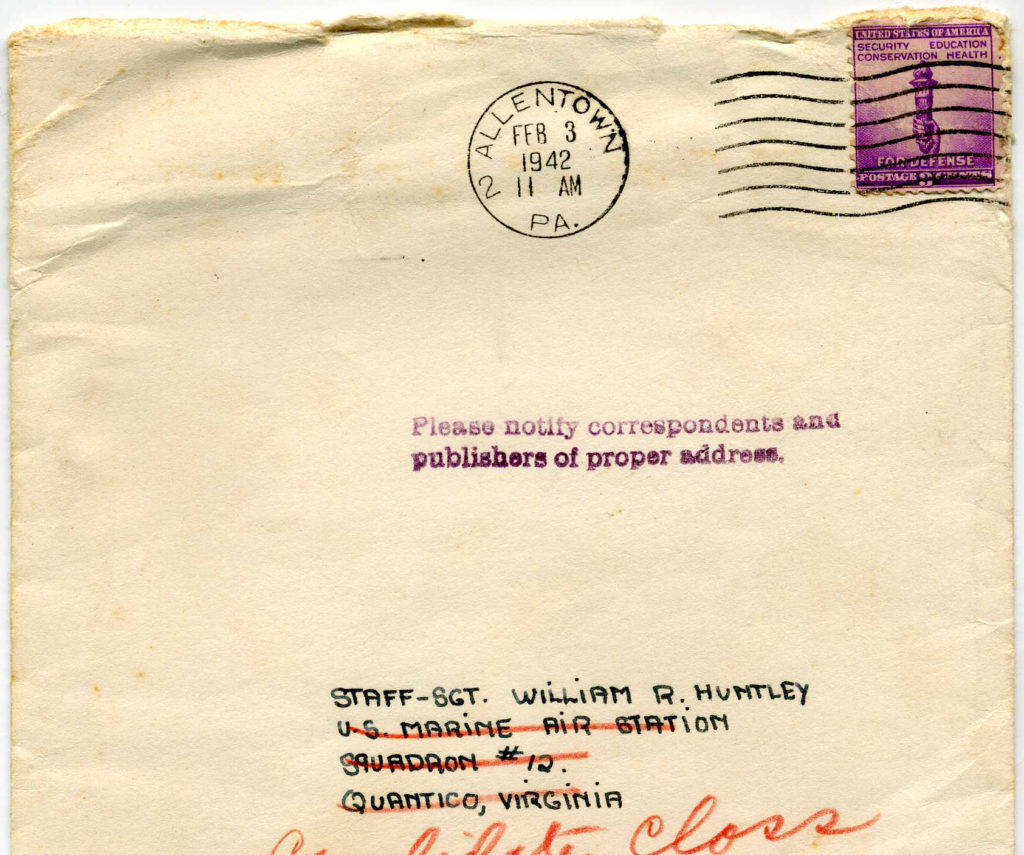 UNITED STATES OF AMERICA
SECURITY EDUCATION
CONSERVATION HEALTH
FOR DEFENSE
POSTAGE 3 CENTS
2 ALLENTOWN
FEB 3
1942
11 AM
PA.
Please notify correspondents and
publishers of proper address.
STAFF-SGT. WILLIAM R. HUNTLEY
U.S. MARINE AIR STATION
SQUADRON #12.
QUANTICO, VIRGINIA
Candidate Class